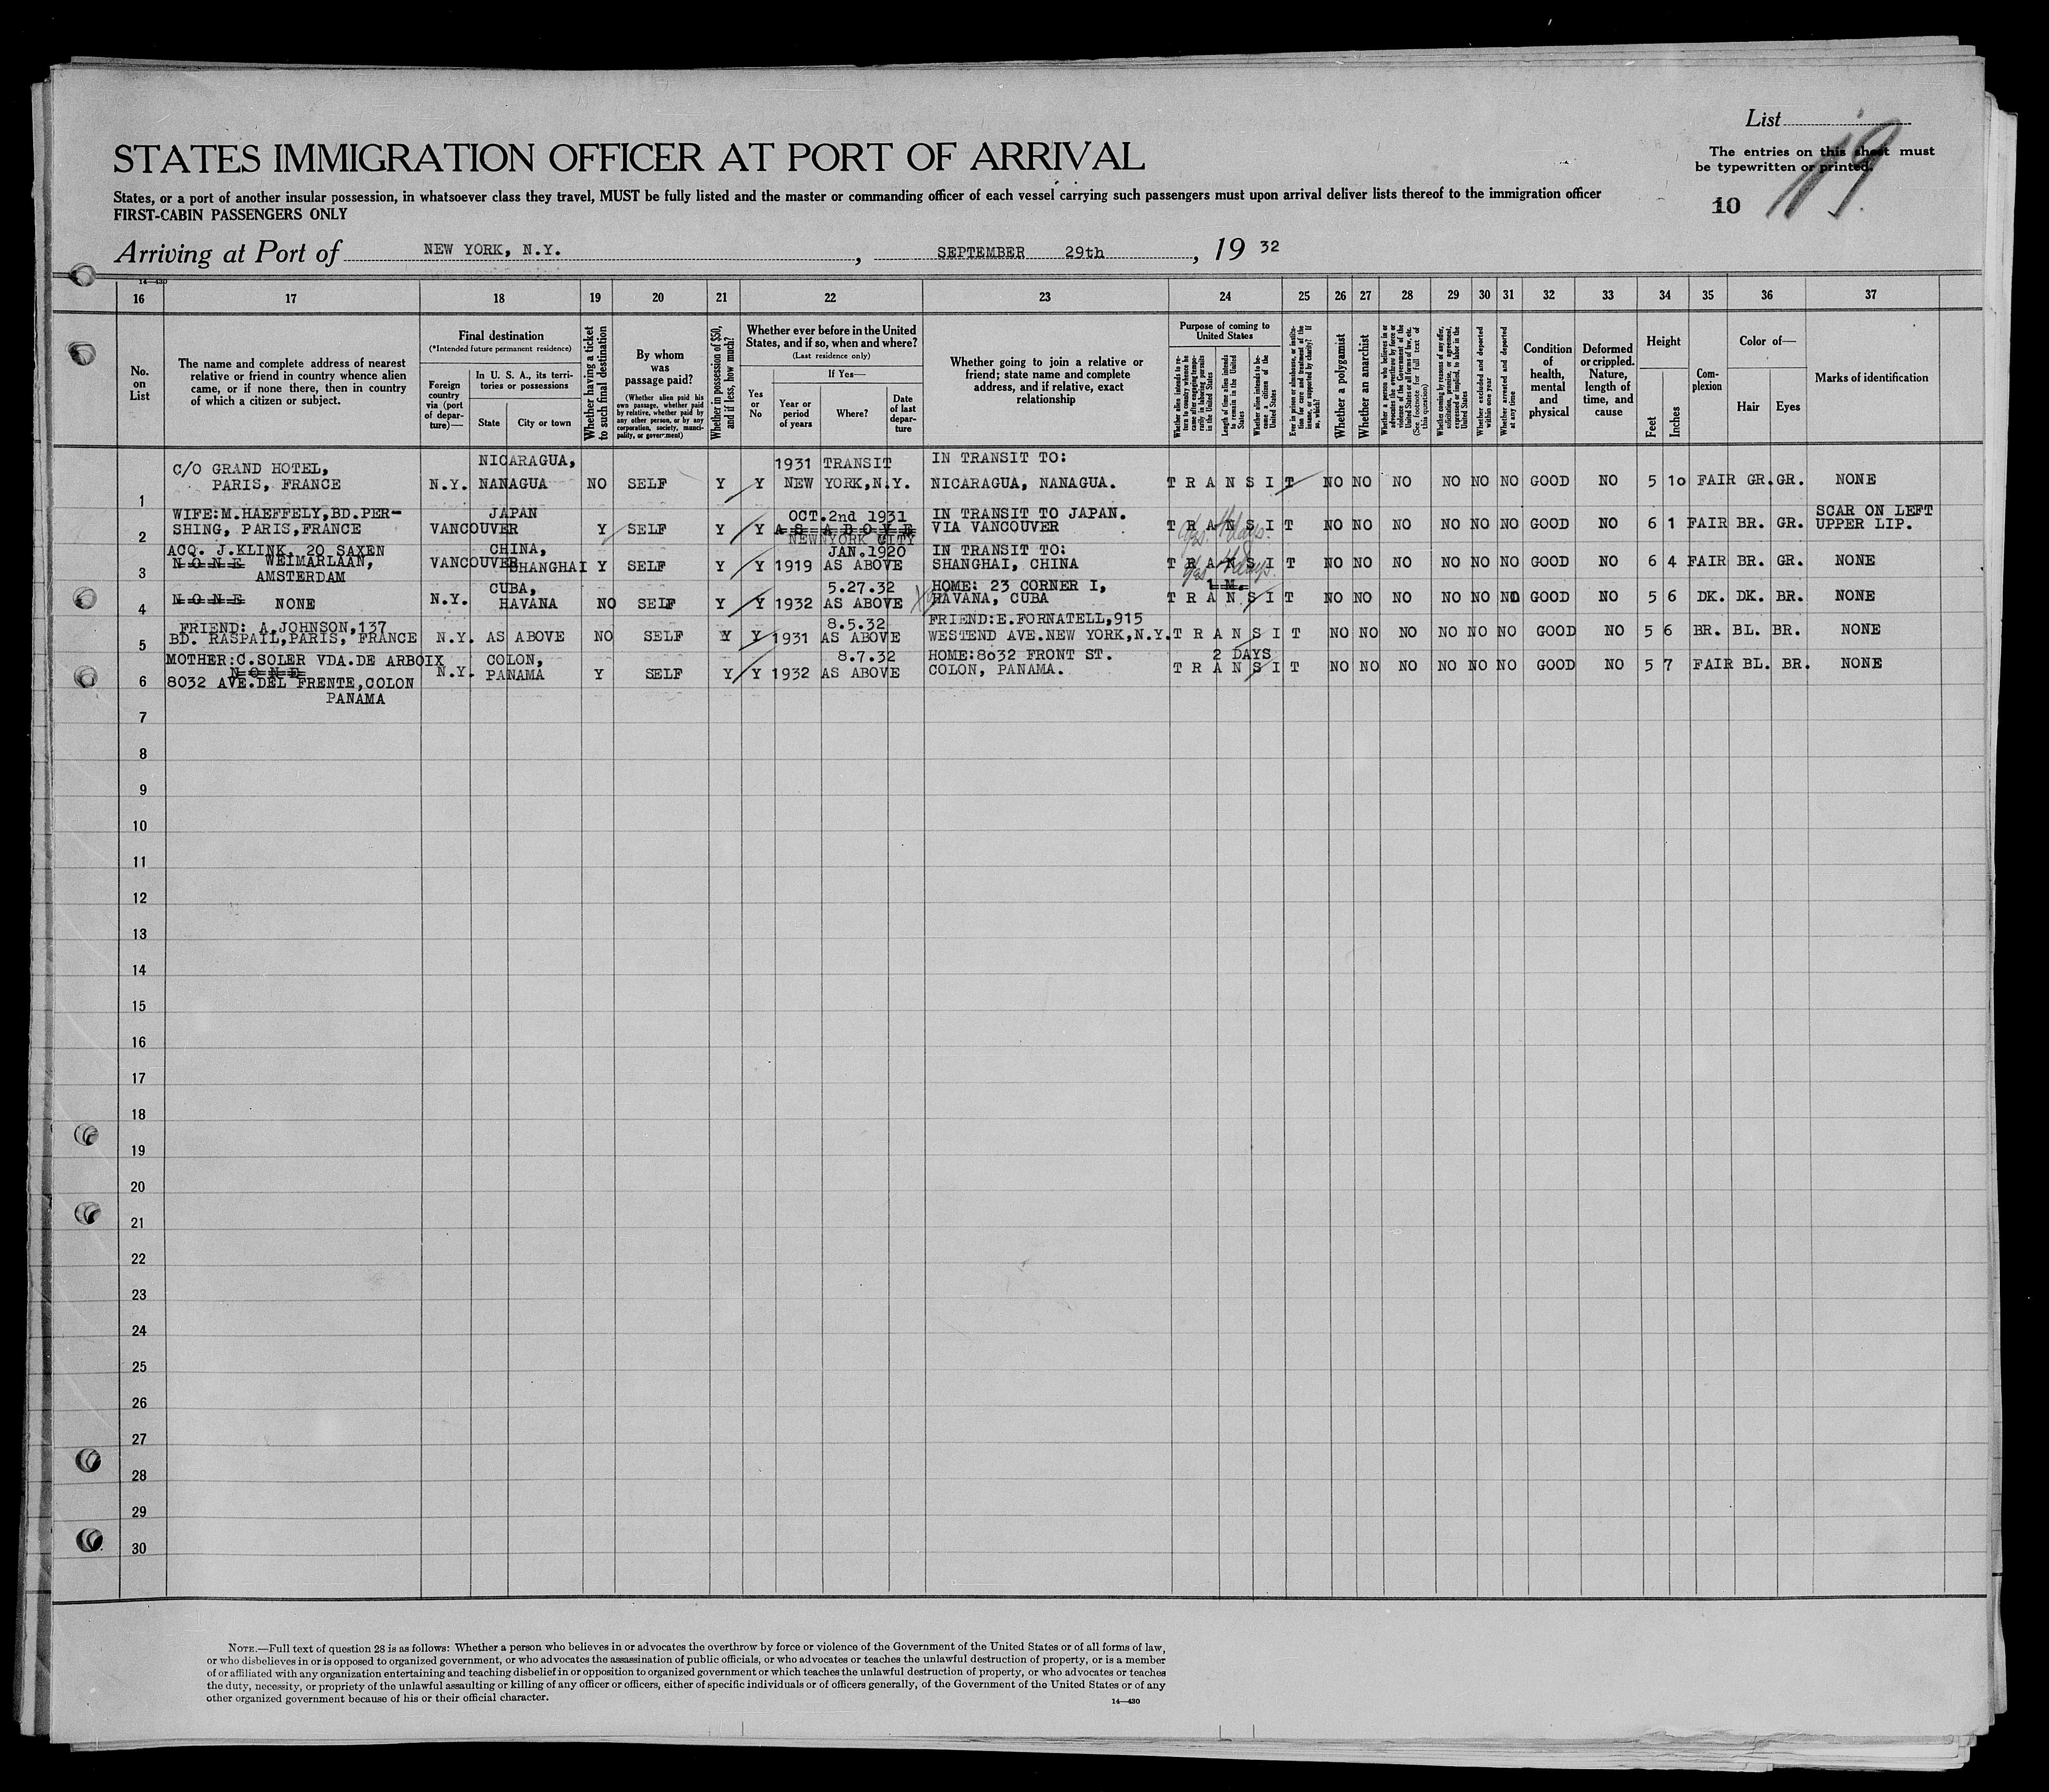 List
STATES IMMIGRATION OFFICER AT PORT OF ARRIVAL
The entries on this sheet must
be typewritten or printed.
119
States, or a port of another insular possession, in whatsoever class they travel, MUST be fully listed and the master or commanding officer of each vessel carrying such passengers must upon arrival deliver lists thereof to the immigration officer
FIRST-CABIN PASSENGERS ONLY
10
Arriving at Port of NEW YORK, N.Y. , SEPTEMBER 29th , 19 32
14—430
16 17 18 19 20 21 22 23 24 25 26 27 28 29 30 31 32 33 34 35 36 37
No.
on
List
The name and complete address of nearest
relative or friend in country whence alien
came, or if none there, then in country
of which a citizen or subject.
Final destination
(*Intended future permanent residence)
Foreign
country
via (port
of depar-
ture)—
In U. S. A., its terri-
tories or possessions
State
City or town
Whether having a ticket
to such final destination
By whom
was
passage paid?
(Whether alien paid his
own passage, whether paid
by relative, whether paid by
any other person, or by any
corporation, society, munici-
pality, or government)
Whether in possession of $50,
and if less, how much?
Whether ever before in the United
States, and if so, when and where?
(Last residence only)
Yes
or
No
If Yes—
Year or
period
of years
Where?
Date
of last
depar-
ture
Whether going to join a relative or
friend; state name and complete
address, and if relative, exact
relationship
Purpose of coming to
United States
Whether alien intends to re-
turn to country whence he
came after engaging tempo-
rarily in laboring pursuits
in the United States
Length of time alien intends
to remain in the United
States
Whether alien intends to be-
come a citizen of the
United States
Ever in prison or almshouse, or institu-
tion for care and treatment of the
insane, or supported by charity? If
so, which?
Whether a polygamist
Whether an anarchist
Whether a person who believes in or
advocates the overthrow by force or
violence of the Government of the
United States or all forms of law, etc.
(See footnote for full text of
this question)
Whether coming by reasons of any offer,
solicitation, promise, or agreement,
expressed or implied, to labor in the
United States
Whether excluded and deported
within one year
Whether arrested and deported
at any time
Condition
of
health,
mental
and
physical
Deformed
or crippled.
Nature,
length of
time, and
cause
Height
Feet
Inches
Com-
plexion
Color of—
Hair
Eyes
Marks of identification
C/O GRAND HOTEL, NICARAGUA, 1931 TRANSIT IN TRANSIT TO:
1 PARIS, FRANCE N.Y. NANAGUA NO SELF Y Y NEW YORK,N.Y. NICARAGUA, NANAGUA. T R A N S I T NO NO NO NO NO NO GOOD NO 5 10 FAIR GR. GR. NONE
WIFE:M.HAEFFELY,BD.PER- JAPAN OCT.2nd 1931 IN TRANSIT TO JAPAN. SCAR ON LEFT
2 SHING, PARIS,FRANCE VANCOUVER Y SELF Y Y AS ABOVE VIA VANCOUVER T R A N S I T NO NO NO NO NO NO GOOD NO 6 1 FAIR BR. GR. UPPER LIP.
NEWYORK CITY 4 days.
ACQ. J.KLINK, 20 SAXEN CHINA, JAN.1920 IN TRANSIT TO:
3 NONE WEIMARLAAN, VANCOUVER SHANGHAI Y SELF Y Y 1919 AS ABOVE SHANGHAI, CHINA T R A N S I T NO NO NO NO NO NO GOOD NO 6 4 FAIR BR. GR. NONE
AMSTERDAM 4 days.
CUBA, 5.27.32 HOME: 23 CORNER I, 1 M.
4 NONE NONE N.Y. HAVANA NO SELF Y Y 1932 AS ABOVE HAVANA, CUBA T R A N S I T NO NO NO NO NO NO GOOD NO 5 6 DK. DK. BR. NONE
FRIEND: A.JOHNSON,137 8.5.32 FRIEND:E.FORNATELL,915
5 BD. RASPAIL,PARIS, FRANCE N.Y. AS ABOVE NO SELF Y Y 1931 AS ABOVE WESTEND AVE.NEW YORK,N.Y. T R A N S I T NO NO NO NO NO NO GOOD NO 5 6 BR. BL. BR. NONE
MOTHER:C.SOLER VDA.DE ARBOIX COLON, 8.7.32 HOME:8032 FRONT ST. 2 DAYS
6 NONE N.Y. PANAMA Y SELF Y Y 1932 AS ABOVE COLON, PANAMA. T R A N S I T NO NO NO NO NO NO GOOD NO 5 7 FAIR BL. BR. NONE
8032 AVE.DEL FRENTE,COLON
PANAMA
7
8
9
10
11
12
13
14
15
16
17
18
19
20
21
22
23
24
25
26
27
28
29
30
NOTE.—Full text of question 28 is as follows: Whether a person who believes in or advocates the overthrow by force or violence of the Government of the United States or of all forms of law,
or who disbelieves in or is opposed to organized government, or who advocates the assassination of public officials, or who advocates or teaches the unlawful destruction of property, or is a member
of or affiliated with any organization entertaining and teaching disbelief in or opposition to organized government or which teaches the unlawful destruction of property, or who advocates or teaches
the duty, necessity, or propriety of the unlawful assaulting or killing of any officer or officers, either of specific individuals or of officers generally, of the Government of the United States or of any
other organized government because of his or their official character.
14—430